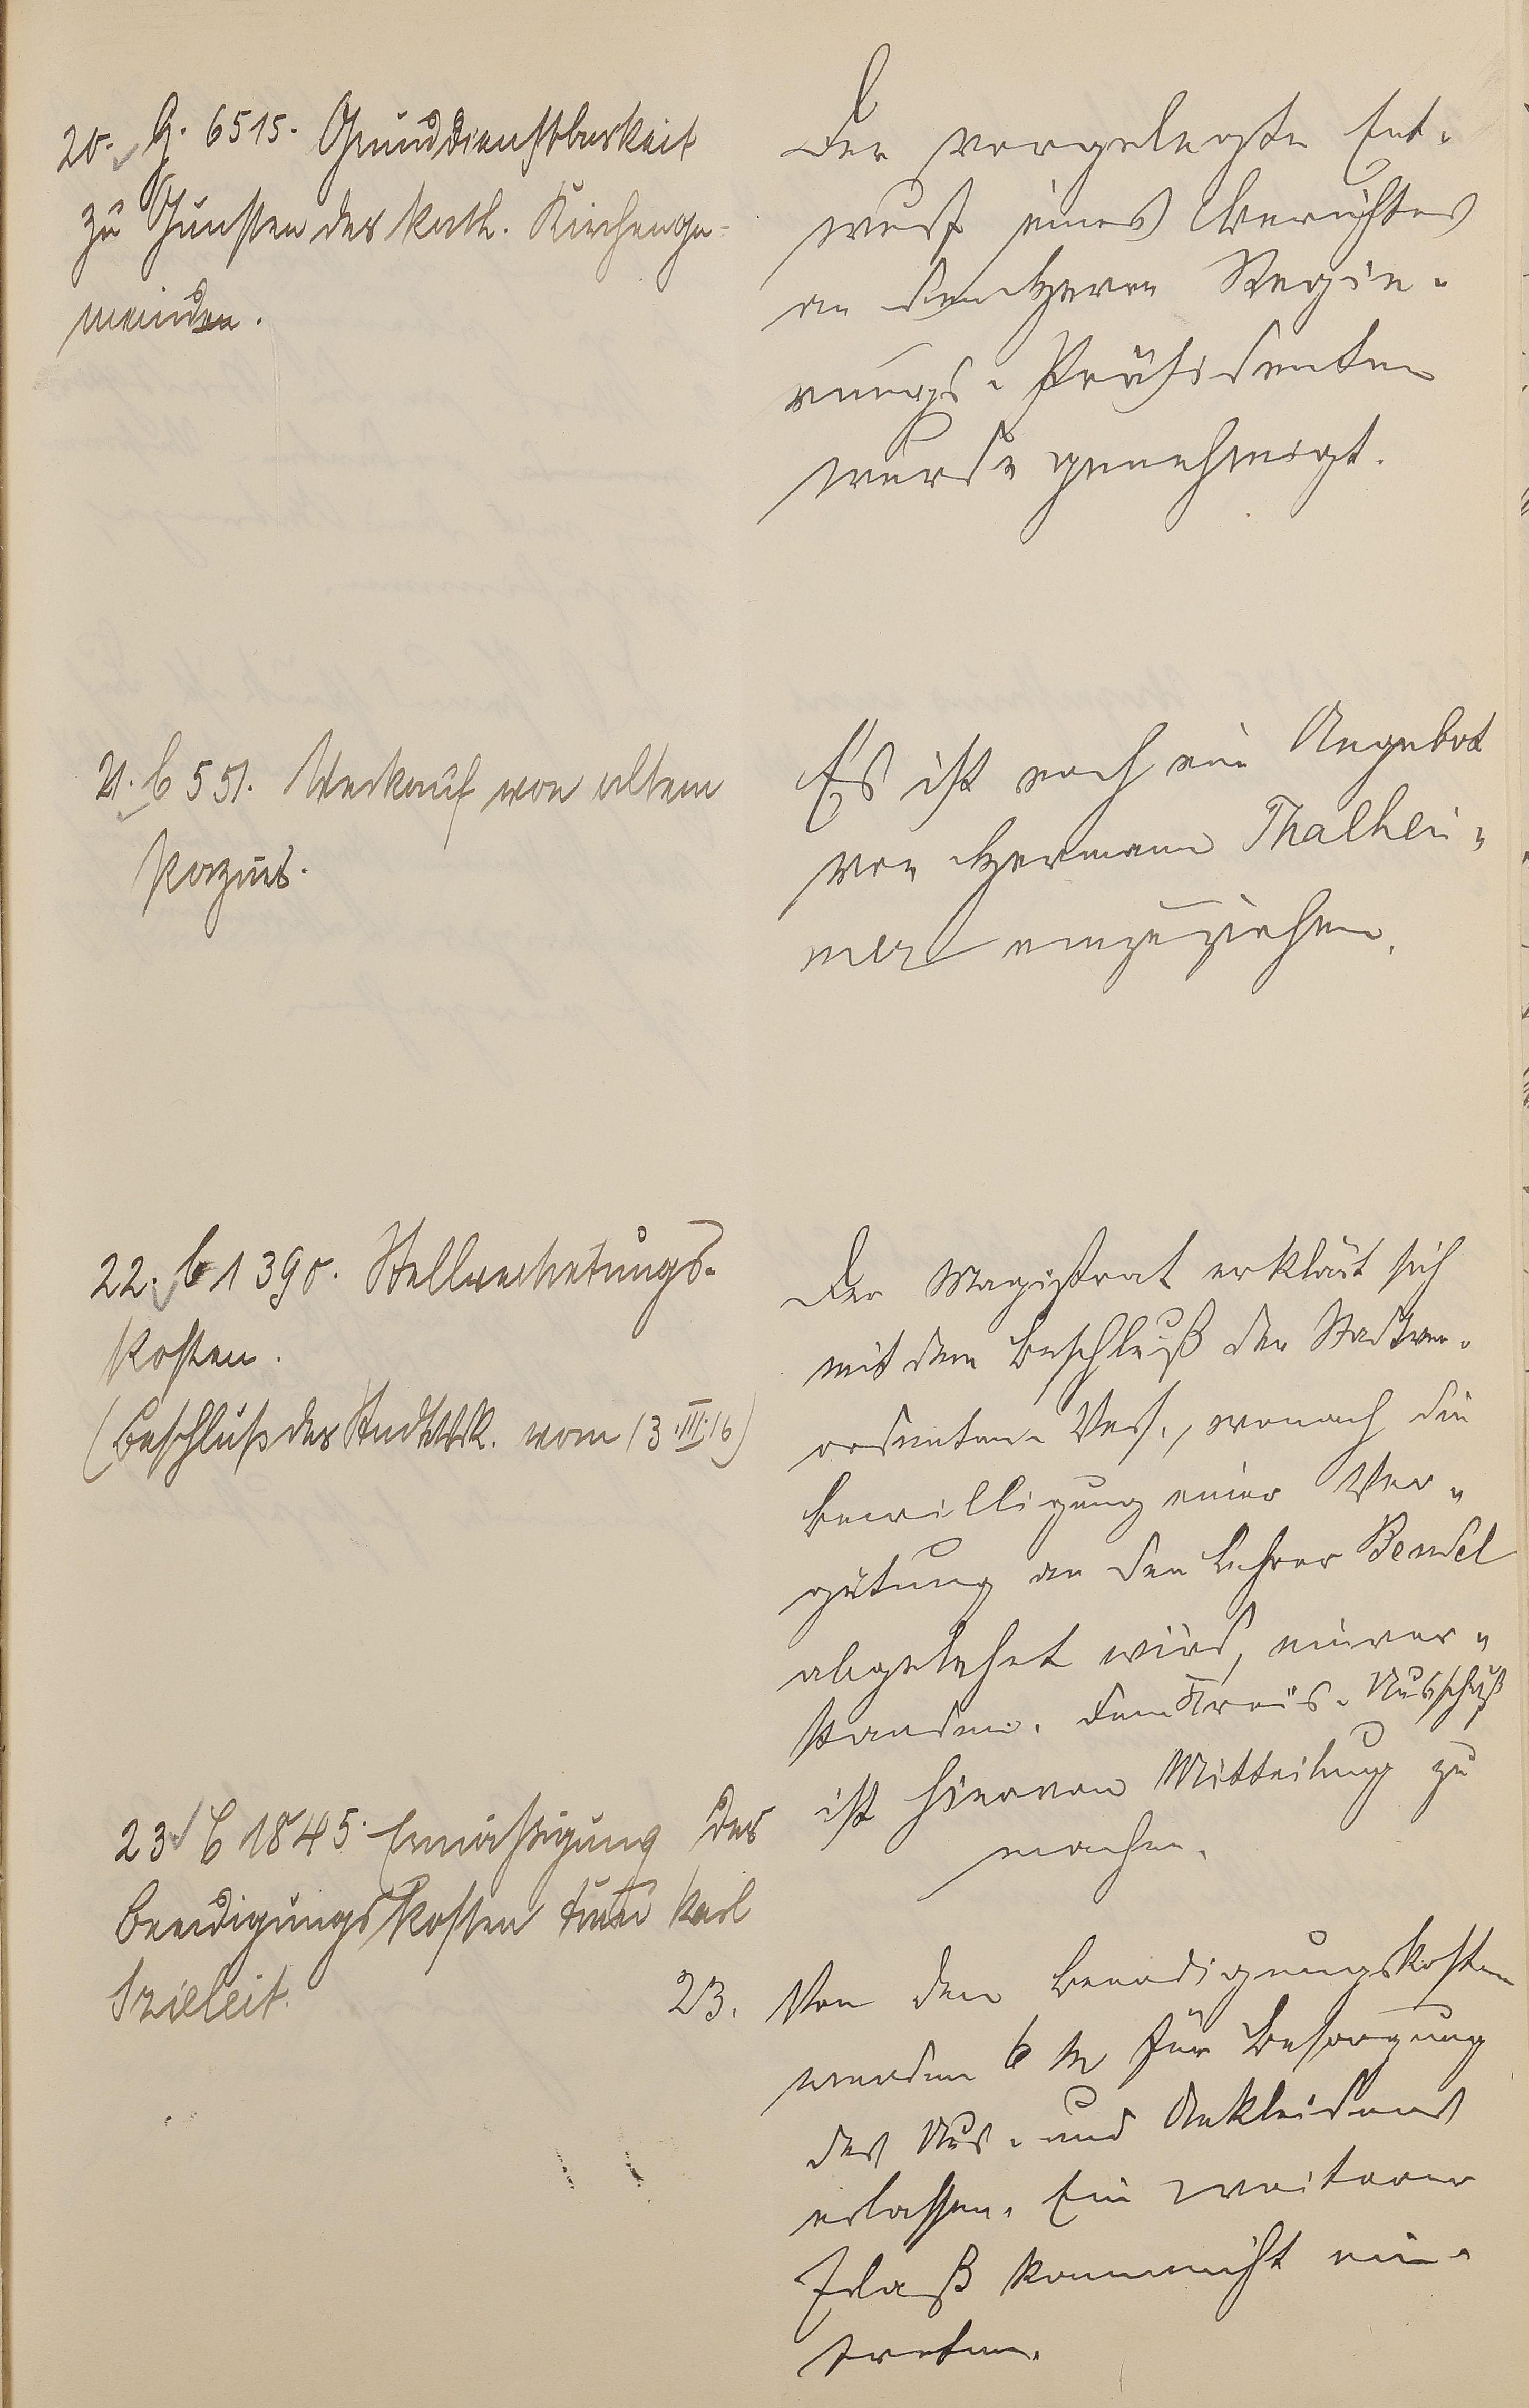 20. G. 6515. Grunddienstbarkeit
zu Gunsten der kath. Kirchenge-
meinden.
Der vorgelegte Ent-
wurf eines Berichtes
an den Herrn Regie-
rungs-Präsidenten
wurde genehmigt.
21. C 551. Verkauf von altem
Es ist noch ein Angebot
von Hermann Thalhei-
mer einzuziehen.
22. C 1390. Stellvertretungs-
kosten.
(Beschluß der Stadtv. vom 13.III.16)
Der Magistrat erklärt sich
mit dem Beschluß der Stadtver-
ordneten-Vers., wonach die
Bewilligung einer Ver-
gütung an den Lehrer Bendel
abgelehnt wird, einver-
standen. Dem Kreis-Ausschuß
ist hiervon Mitteilung zu
machen.
23. C 1845. Ermäßigung der
Beerdigungskosten Karl
23. Von den Beerdigungskosten
werden 6 M für Besorgung
des Aus- und Ankleidens
erlassen. Ein weiterer
Erlaß kann nicht ein-
treten.